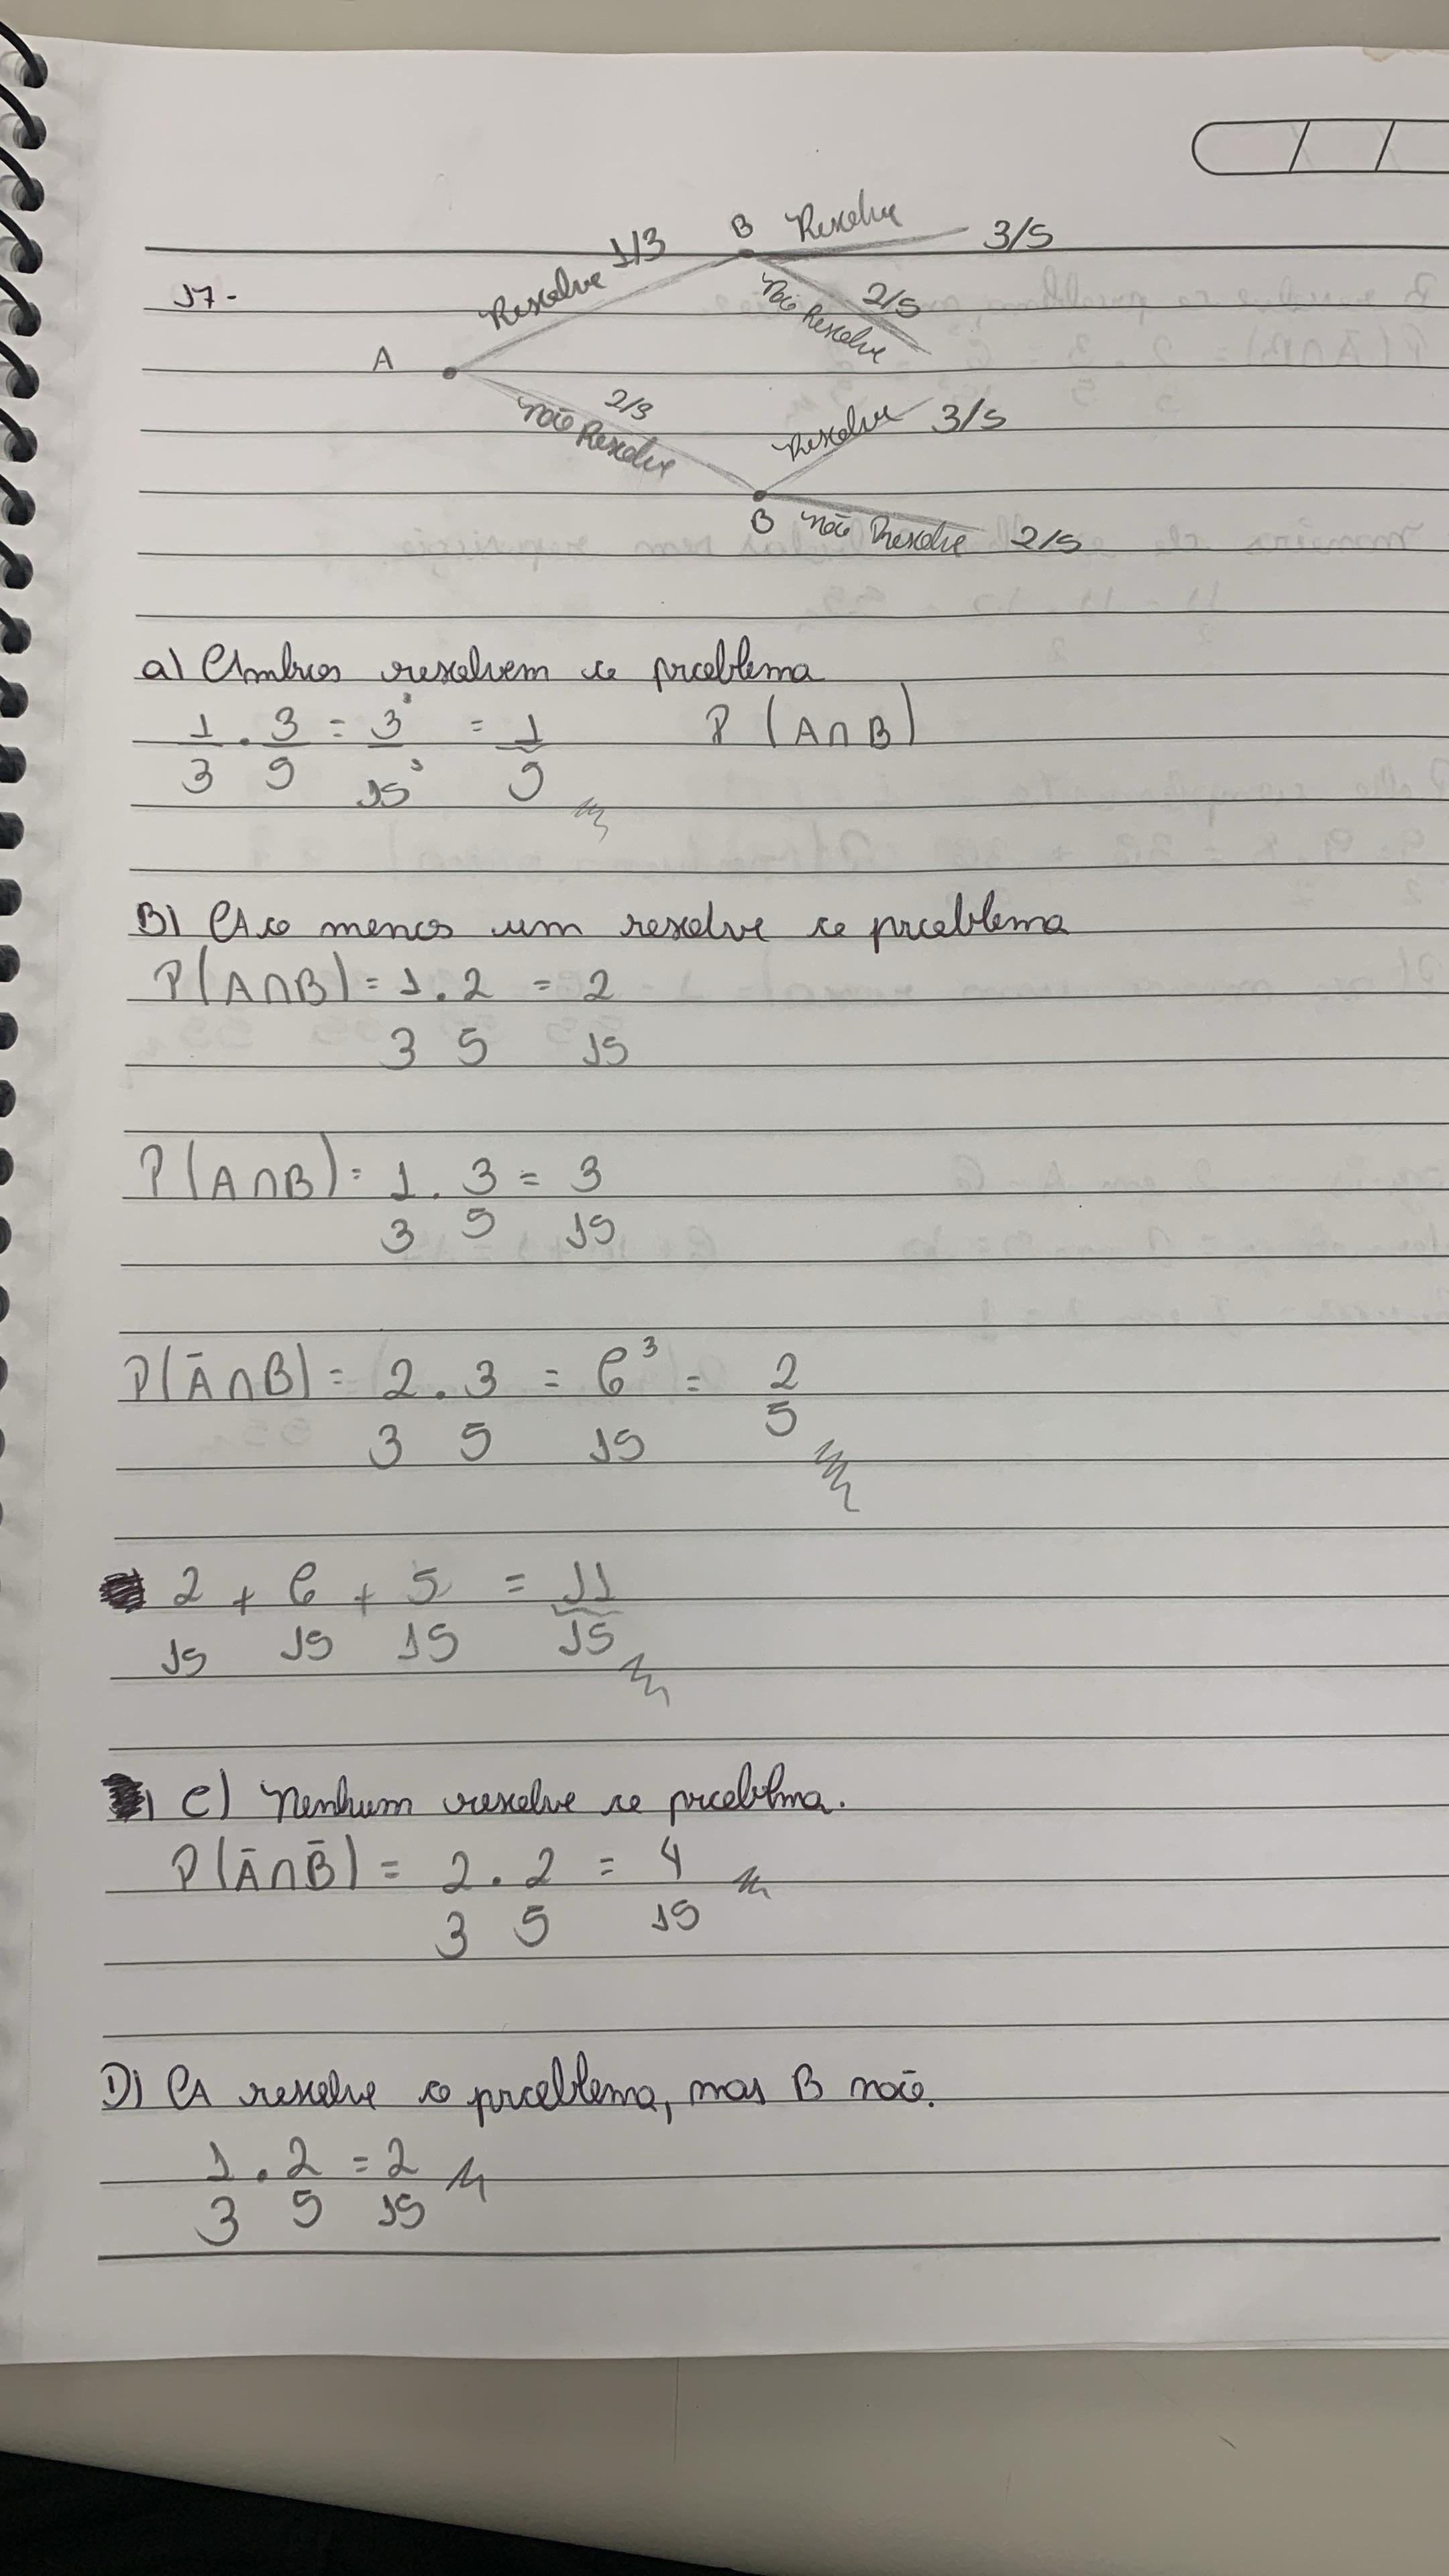 B Resolve 3/5
Resolve 1/3
17-
Não Resolve 2/5
A
2/3
Não Resolve
Resolve 3/5
B Não Resolve 2/5
a) Ambos resolvem o problema
1/3 . 3/5 = 3³/15³ = 1/5 P(A∩B)
B) Ao menos um resolve o problema
P(A∩B) = 1/3 . 2/5 = 2/15
P(A∩B) = 1/3 . 3/5 = 3/15
P(Ā∩B) = 2/3 . 3/5 = 6³/15 = 2/5
2/15 + 6/15 + 5/15 = 11/15
C) Nenhum resolve o problma.
P(Ā∩B̄) = 2/3 . 2/5 = 4/15
D) A resolve o problema, mas B não.
1/3 . 2/5 = 2/15